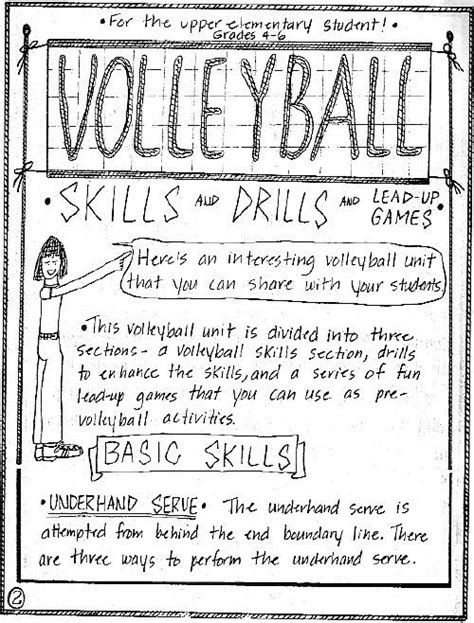 • For the upper elementary student! •
Grades 4-6
VOLLEYBALL
• SKILLS AND DRILLS AND LEAD-UP GAMES •
Here's an interesting volleyball unit
that you can share with your students.
• This volleyball unit is divided into three
sections - a volleyball skills section, drills
to enhance the skills, and a series of fun
lead-up games that you can use as pre-
volleyball activities.
BASIC SKILLS
• UNDERHAND SERVE • The underhand serve is
attempted from behind the end boundary line. There
are three ways to perform the underhand serve.
2